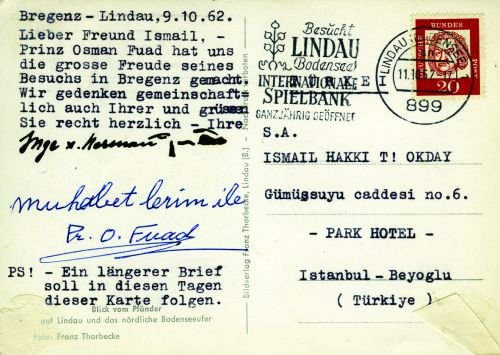 Bregenz - Lindau, 9.10.62.
Lieber Freund Ismail, -
Prinz Osman Fuad hat uns
die grosse Freude seines
Besuchs in Bregenz gemacht.
Wir gedenken gemeinschaft
lich auch Ihrer und grüssen
Sie recht herzlich - Ihre
muhabet lerim ile
Pr. O. Fuad
PS! - Ein längerer Brief
soll in diesen Tagen
dieser Karte folgen.
Blick vom Pfänder
auf Lindau und das nördliche Bodenseeufer
Foto: Franz Thorbecke
Bildverlag Franz Thorbecke, Lindau (B.) - Nachdruck verboten
Besucht
LINDAU
Bodensee
INTERNATIONALE
SPIELBANK
GANZJÄHRIG GEÖFFNET
LINDAU (BODENSEE)
11.10.62
899
BUNDES
POST
20
TÜRKEI
S.A.
ISMAIL HAKKI T! OKDAY
Gümüssuyu caddesi no.6.
- PARK HOTEL -
Istanbul-Beyoglu
( Türkiye )